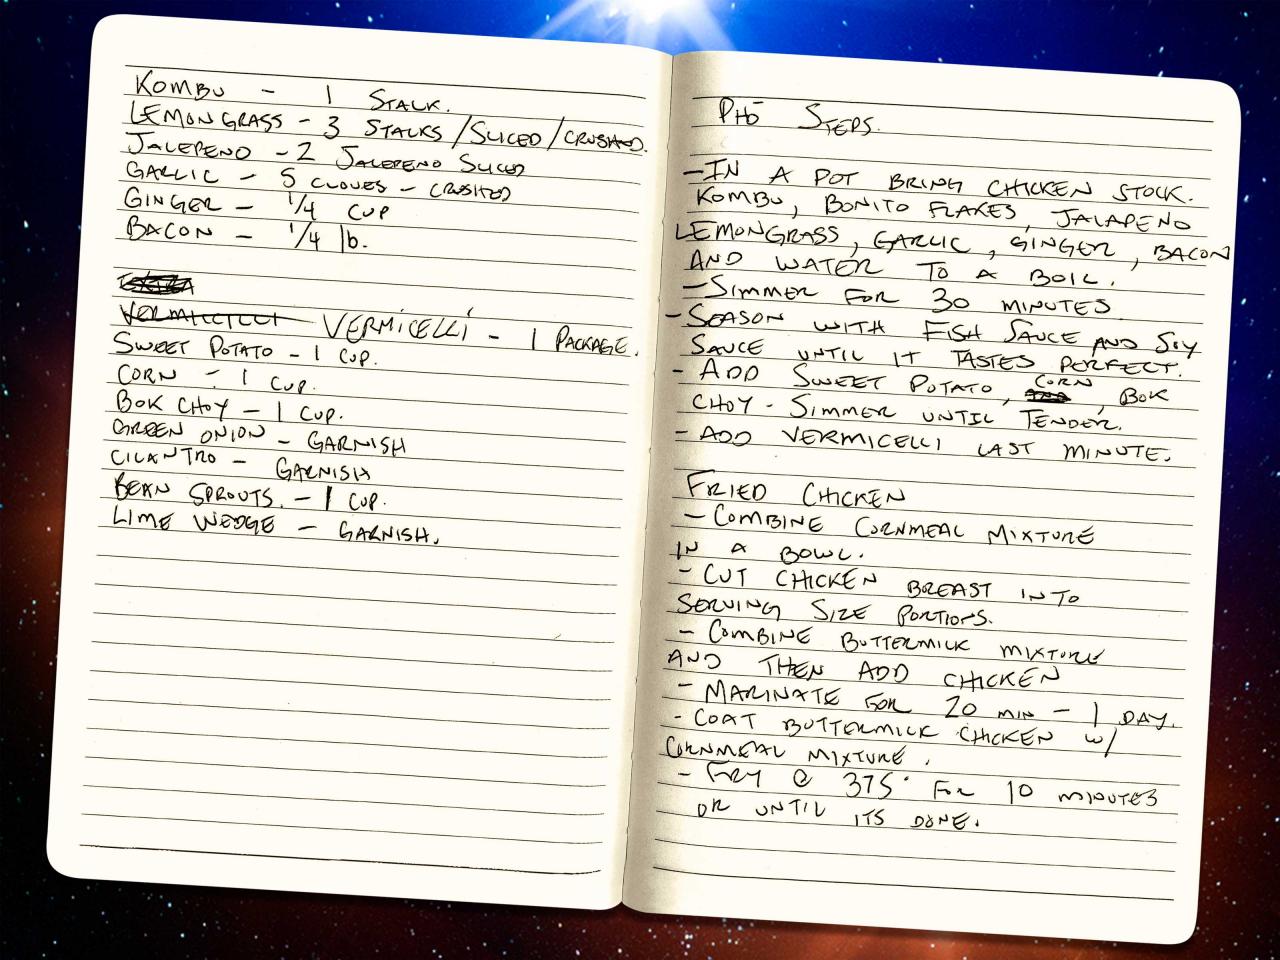 KOMBU - 1 STALK.
LEMONGRASS - 3 STALKS / SLICED / CRUSHED.
JALEPENO - 2 JALEPENO SLICED
GARLIC - 5 CLOVES - CRUSHED
GINGER - 1/4 CUP
BACON - 1/4 lb.
VERMICELLI - 1 PACKAGE.
SWEET POTATO - 1 CUP.
CORN - 1 CUP.
BOK CHOY - 1 CUP.
GREEN ONION - GARNISH
CILANTRO - GARNISH
BEAN SPROUTS. - 1 CUP.
LIME WEDGE - GARNISH.
PHŌ STEPS.
- IN A POT BRING CHICKEN STOCK.
KOMBU, BONITO FLAKES, JALAPENO
LEMONGRASS, GARLIC, GINGER, BACON
AND WATER TO A BOIL.
- SIMMER FOR 30 MINUTES
- SEASON WITH FISH SAUCE AND SOY
SAUCE UNTIL IT TASTES PERFECT.
- ADD SWEET POTATO, CORN, BOK
CHOY - SIMMER UNTIL TENDER.
- ADD VERMICELLI LAST MINUTE.
FRIED CHICKEN
- COMBINE CORNMEAL MIXTURE
IN A BOWL.
- CUT CHICKEN BREAST INTO
SERVING SIZE PORTIONS.
- COMBINE BUTTERMILK MIXTURE
AND THEN ADD CHICKEN
- MARINATE FOR 20 MIN - 1 DAY.
- COAT BUTTERMILK CHICKEN W/
CORNMEAL MIXTURE.
- FRY @ 375° FOR 10 MINUTES
OR UNTIL ITS DONE.